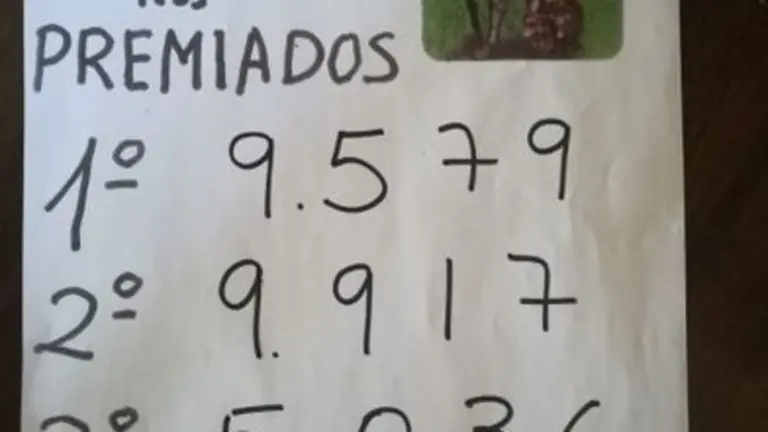 PREMIADOS
1º 9.579
2º 9.917